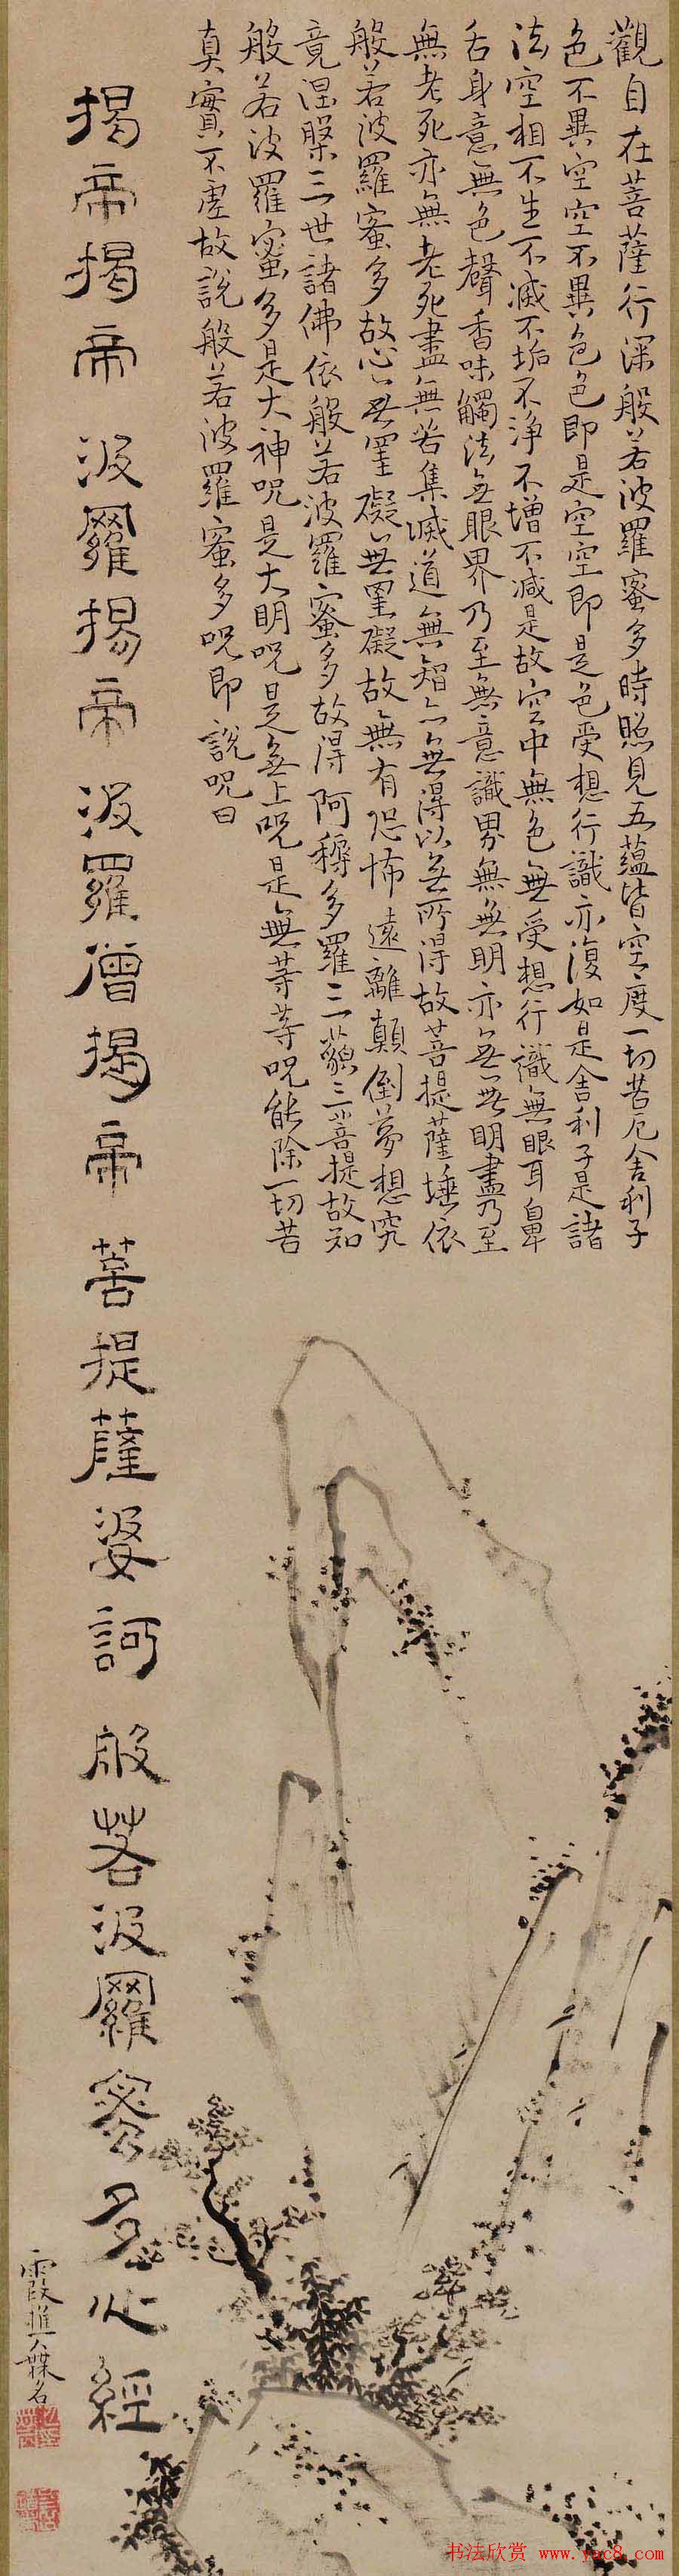 觀自在菩薩行深般若波羅蜜多時照見五蘊皆空度一切苦厄舍利子
色不異空空不異色色即是空空即是色受想行識亦復如是舍利子是諸
法空相不生不滅不垢不淨不增不減是故空中無色無受想行識無眼耳鼻
舌身意無色聲香味觸法無眼界乃至無意識界無無明亦無無明盡乃至
無老死亦無老死盡無苦集滅道無智亦無得以無所得故菩提薩埵依
般若波羅蜜多故心無罣礙無罣礙故無有恐怖遠離顛倒夢想究
竟涅槃三世諸佛依般若波羅蜜多故得阿耨多羅三藐三菩提故知
般若波羅蜜多是大神呪是大明呪是無上呪是無等等呪能除一切苦
真實不虛故說般若波羅蜜多呪即說呪曰
揭帝揭帝波羅揭帝波羅僧揭帝菩提薩婆訶般若波羅蜜多心經
霞樵無名
书法欣赏 www.yac8.com